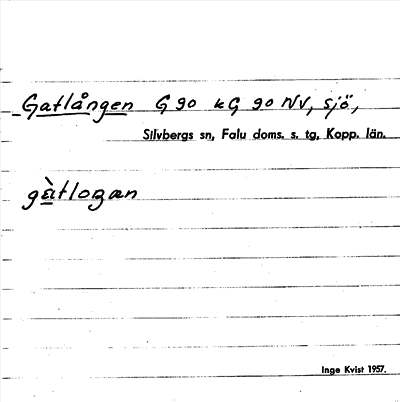 Gatlången G 90 kG 90 NV, sjö,
Silvbergs sn, Falu doms. s. tg, Kopp. län.
gàtloŋan
Inge Kvist 1957.